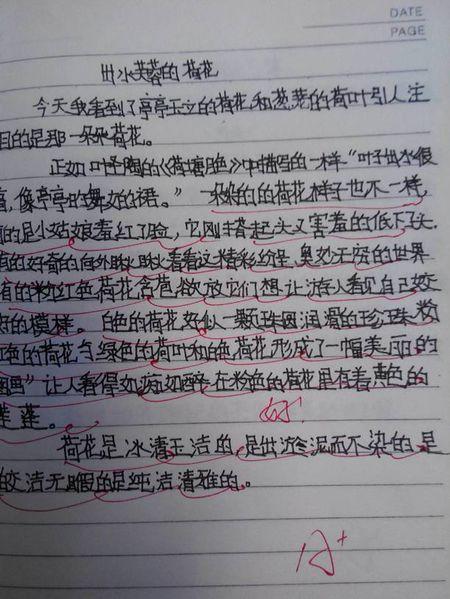 DATE
PAGE
出水芙蓉的荷花
今天我看到了亭亭玉立的荷花,和葱茏的荷叶引人注
目的是那一朵朵荷花。
正如叶圣陶的《荷塘月色》中描写的一样"叶子出水很
高,像亭亭的舞女的裙。"一朵朵的的荷花样子也不一样,
有的是小姑娘羞红了脸,它刚抬起头又害羞的低下了头.
有的好奇的向外瞅瞅看看这精彩纷呈,奥妙无穷的世界
有的粉红色荷花含苞欲放它们想让游人看见自己姣
好的模样。白色的荷花好似一颗珠圆润滑的珍珠粉
红色的荷花与绿色的荷叶和白色荷花形成了一幅美丽的
图画"让人看得如痴如醉在粉色的荷花里有着黄色的
莲蓬。
好!
荷花是冰清玉洁的,是出淤泥而不染的,是
皎洁无瑕的是纯洁清雅的。
A+